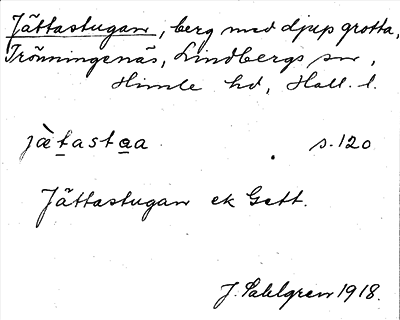 Jättastugan, berg med djup grotta,
Trönningenäs, Lindbergs sn,
Himle hd, Hall. l.
jä̀tastaa s. 120
Jättastugan ek Gett.
J. Sahlgren 1918.